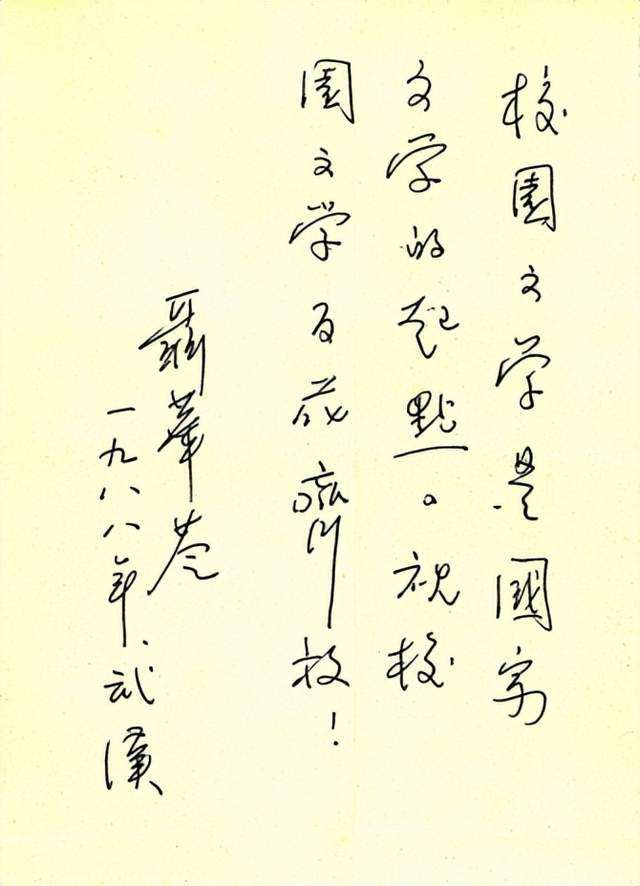 校園文学是國家
文学的起點。祝校
園文学百花齊放！
聶華苓
一九八八年、武漢